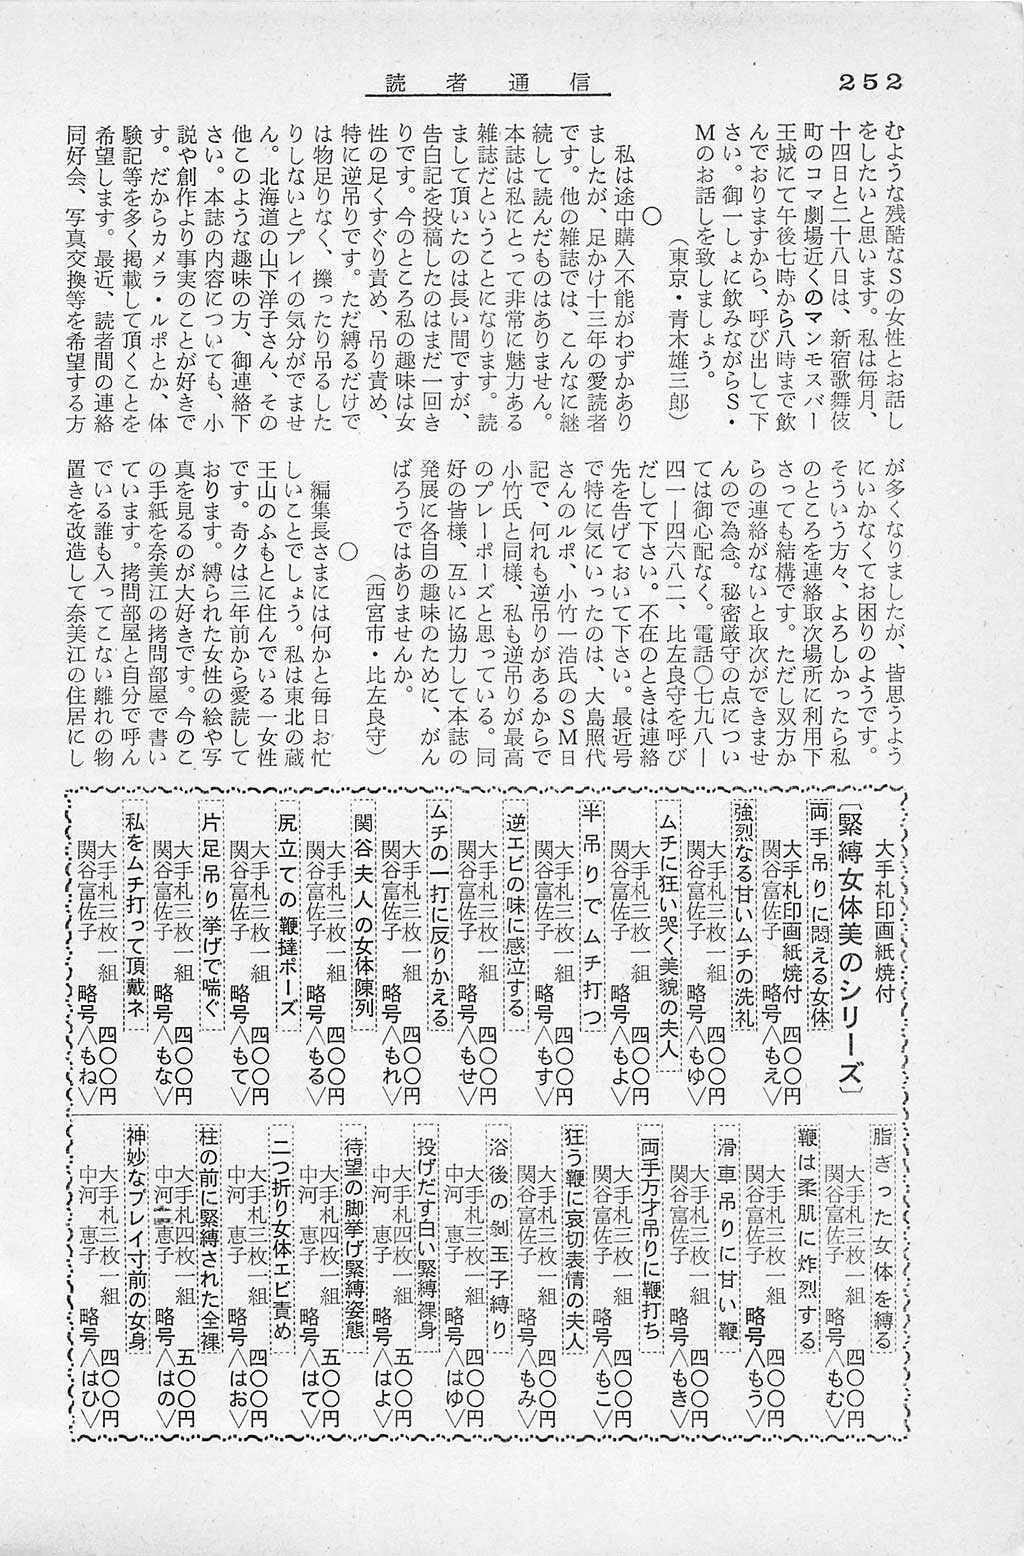 252
読者通信
むような残酷なSの女性とお話し
をしたいと思います。私は毎月、
十四日と二十八日は、新宿歌舞伎
町のコマ劇場近くのマンモスバー
王城にて午後七時から八時まで飲
んでおりますから、呼び出して下
さい。御一しょに飲みながらS・
Mのお話しを致しましょう。
(東京・青木雄三郎)
○
私は途中購入不能がわずかあり
ましたが、足かけ十三年の愛読者
です。他の雑誌では、こんなに継
続して読んだものはありません。
本誌は私にとって非常に魅力ある
雑誌だということになります。読
まして頂いたのは長い間ですが、
告白記を投稿したのはまだ一回き
りです。今のところ私の趣味は女
性の足くすぐり責め、吊り責め、
特に逆吊りです。ただ縛るだけで
は物足りなく、擽ったり吊るした
りしないとプレイの気分がでませ
ん。北海道の山下洋子さん、その
他このような趣味の方、御連絡下
さい。本誌の内容についても、小
説や創作より事実のことが好きで
す。だからカメラ・ルポとか、体
験記等を多く掲載して頂くことを
希望します。最近、読者間の連絡
同好会、写真交換等を希望する方
が多くなりましたが、皆思うよう
にいかなくてお困りのようです。
そういう方々、よろしかったら私
のところを連絡取次場所に利用下
さっても結構です。ただし双方か
らの連絡がないと取次ができませ
んので為念。秘密厳守の点につい
ては御心配なく。電話〇七九八―
四一―四六八二、比左良守を呼び
だして下さい。不在のときは連絡
先を告げておいて下さい。最近号
で特に気にいったのは、大島照代
さんのルポ、小竹一浩氏のSM日
記で、何れも逆吊りがあるからで
小竹氏と同様、私も逆吊りが最高
のプレーポーズと思っている。同
好の皆様、互いに協力して本誌の
発展に各自の趣味のために、がん
ばろうではありませんか。
(西宮市・比左良守)
○
編集長さまには何かと毎日お忙
しいことでしょう。私は東北の蔵
王山のふもとに住んでいる一女性
です。奇クは三年前から愛読して
おります。縛られた女性の絵や写
真を見るのが大好きです。今のこ
の手紙を奈美江の拷問部屋で書い
ています。拷問部屋と自分で呼ん
でいる誰も入ってこない離れの物
置きを改造して奈美江の住居にし
大手札印画紙焼付
〔緊縛女体美のシリーズ〕
両手吊りに悶える女体
大手札印画紙焼付 四〇〇円
関谷富佐子 略号<もえ>
強烈なる甘いムチの洗礼
大手札三枚一組 四〇〇円
関谷富佐子 略号<もゆ>
ムチに狂い哭く美貌の夫人
大手札三枚一組 四〇〇円
関谷富佐子 略号<もよ>
半吊りでムチ打つ
大手札三枚一組 四〇〇円
関谷富佐子 略号<もす>
逆エビの味に感泣する
大手札三枚一組 四〇〇円
関谷富佐子 略号<もせ>
ムチの一打に反りかえる
大手札三枚一組 四〇〇円
関谷富佐子 略号<もれ>
関谷夫人の女体陳列
大手札三枚一組 四〇〇円
関谷富佐子 略号<もる>
尻立ての鞭撻ポーズ
大手札三枚一組 四〇〇円
関谷富佐子 略号<もて>
片足吊り挙げて喘ぐ
大手札三枚一組 四〇〇円
関谷富佐子 略号<もな>
私をムチ打って頂戴ネ
大手札三枚一組 四〇〇円
関谷富佐子 略号<もね>
脂ぎった女体を縛る
大手札三枚一組 四〇〇円
関谷富佐子 略号<もむ>
鞭は柔肌に炸烈する
大手札三枚一組 四〇〇円
関谷富佐子 略号<もう>
滑車吊りに甘い鞭
大手札三枚一組 四〇〇円
関谷富佐子 略号<もき>
両手万才吊りに鞭打ち
大手札三枚一組 四〇〇円
関谷富佐子 略号<もこ>
狂う鞭に哀切表情の夫人
大手札三枚一組 四〇〇円
関谷富佐子 略号<もみ>
浴後の剝玉子縛り
大手札三枚一組 四〇〇円
中河恵子 略号<はゆ>
投げだす白い緊縛裸身
大手札四枚一組 五〇〇円
中河恵子 略号<はよ>
待望の脚挙げ緊縛姿態
大手札四枚一組 五〇〇円
中河恵子 略号<はて>
二つ折り女体エビ責め
大手札三枚一組 四〇〇円
中河恵子 略号<はお>
柱の前に緊縛された全裸
大手札四枚一組 五〇〇円
中河恵子 略号<はの>
神妙なプレイ寸前の女身
大手札三枚一組 四〇〇円
中河恵子 略号<はひ>